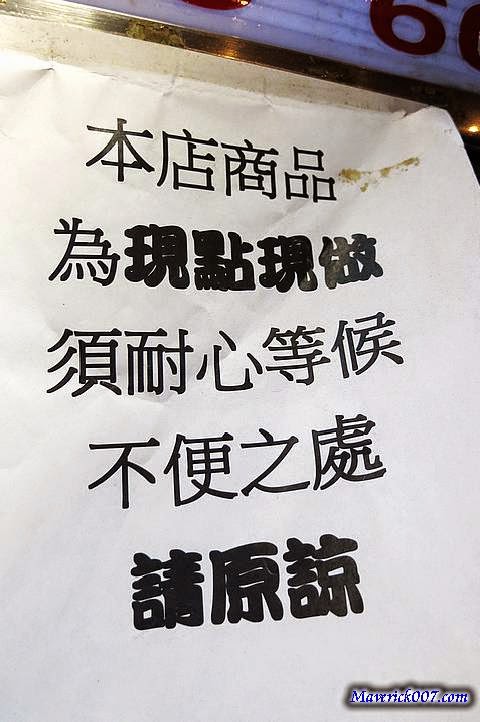 60
本店商品
為現點現做
須耐心等候
不便之處
請原諒
Maverick007.com